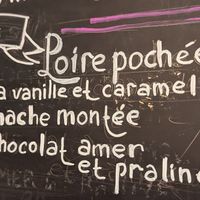 Poire pochée
a vanille et caramél
nache montée
chocolat amer
et praliné